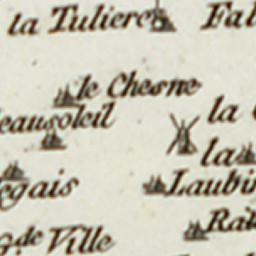 la Tuliere
Fal
le Chesne
eausoleil
la
la
egais
Laubin
Rai
g.de Ville